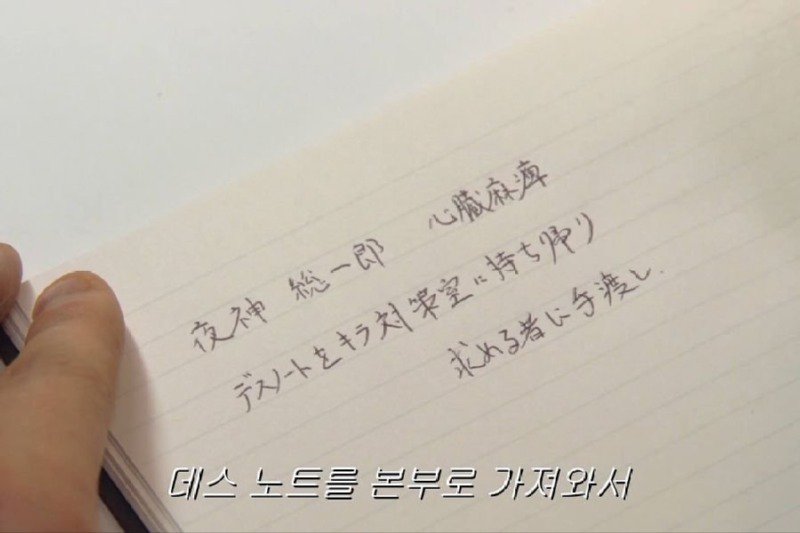 夜神 総一郎 心臓麻痺
デスノートをキラ対策室に持ち帰り
求める者に手渡し.
데스 노트를 본부로 가져와서